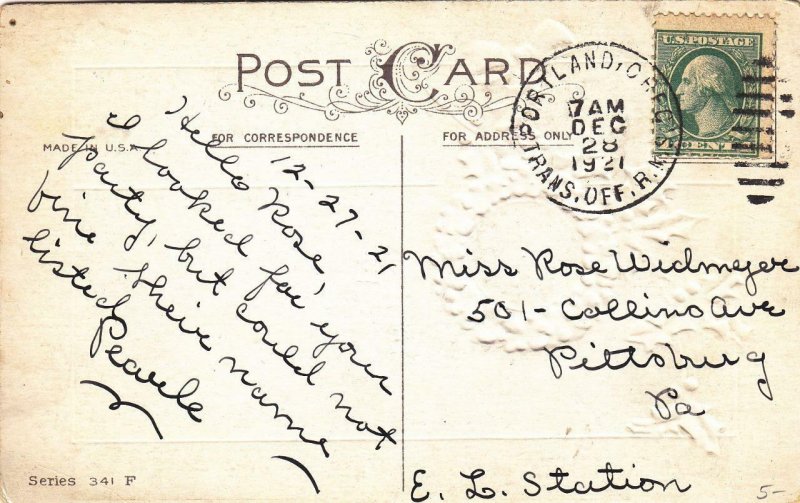 POST CARD
FOR CORRESPONDENCE
FOR ADDRESS ONLY
MADE IN U.S.A.
PORTLAND, OREG.
7 AM
DEC
28
1921
TRANS. OFF. R.M.
U.S. POSTAGE
12-27-21
Hello Rose,
I looked for your
party, but could not
fine theire name
listed
Pearle
Miss Rose Widmeyer
501- Collins Ave
Pittsburg
Pa
E. L. Station
Series 341 F
5-